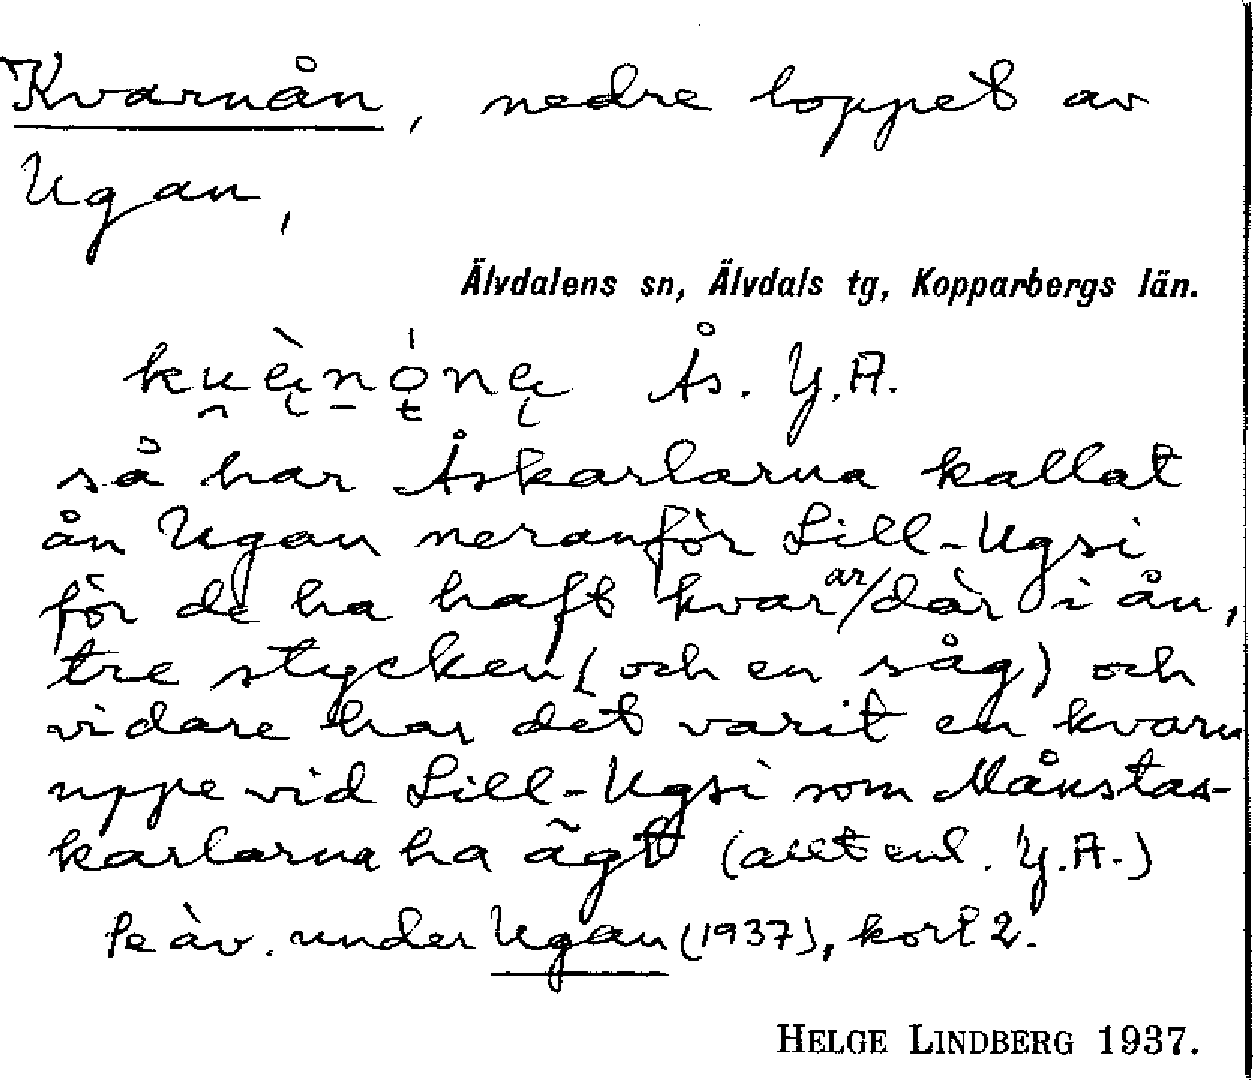 Kvarnån, nedre loppet av
Ugan,
Älvdalens sn, Älvdals tg, Kopparbergs län.
Ås. Y.A.
så har Åskarlarna kallat
ån Ugan neranför Lill-Ugsi
för de ha haft kvarar/där i ån,
tre stycken (och en såg) och
vidare har det varit en kvarn
uppe vid Lill-Ugsi som Månstas-
karlarna ha ägt (allt enl. Y.A.)
Se äv. under Ugan (1937), kort 2.
HELGE LINDBERG 1937.